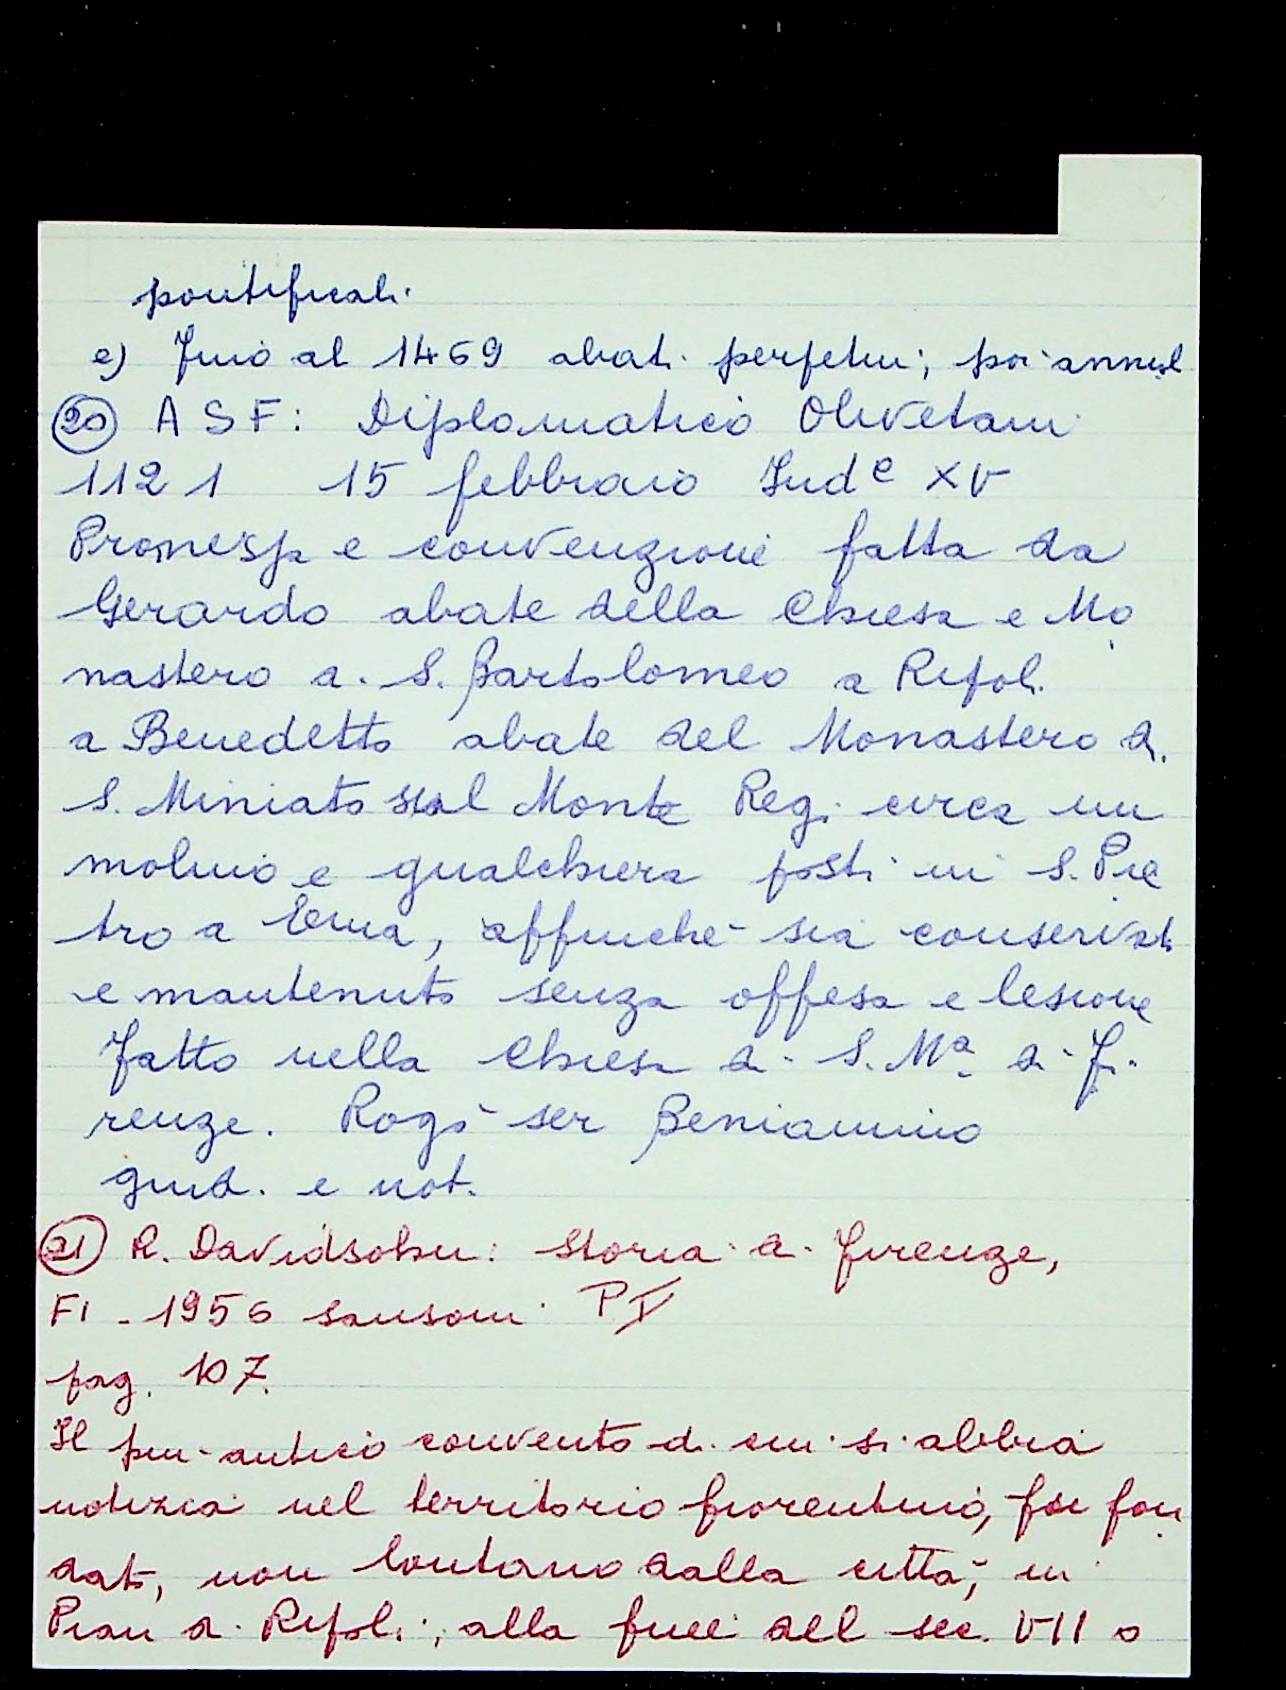 pontificali.
e) Fino al 1469 abati perpetui; poi annual
20 ASF: Diplomatico Olivetani
1121 15 febbraio Ind.e XV
Promessa e convenzione fatta da
Gerardo abate della Chiesa e Mo
nastero di S. Bartolomeo a Ripoli
a Benedetto abate del Monastero di
S. Miniato sul Monte Reg. circa un
molino e gualchiera posti in S. Pie
tro a Ema, affinché sia conservato
e mantenuto senza offesa e lesione
fatto nella Chiesa di S. Ma di Fi-
renze. Rogò ser Beniamino
giud. e not.
21 R. Davidsohn: Storia di Firenze,
FI - 1956 Sansoni P V
pag. 107.
Il più antico convento di cui si abbia
notizia nel territorio fiorentino, fu fon
dato, non lontano dalla città, in
Pian di Ripoli, alla fine del sec. VII o